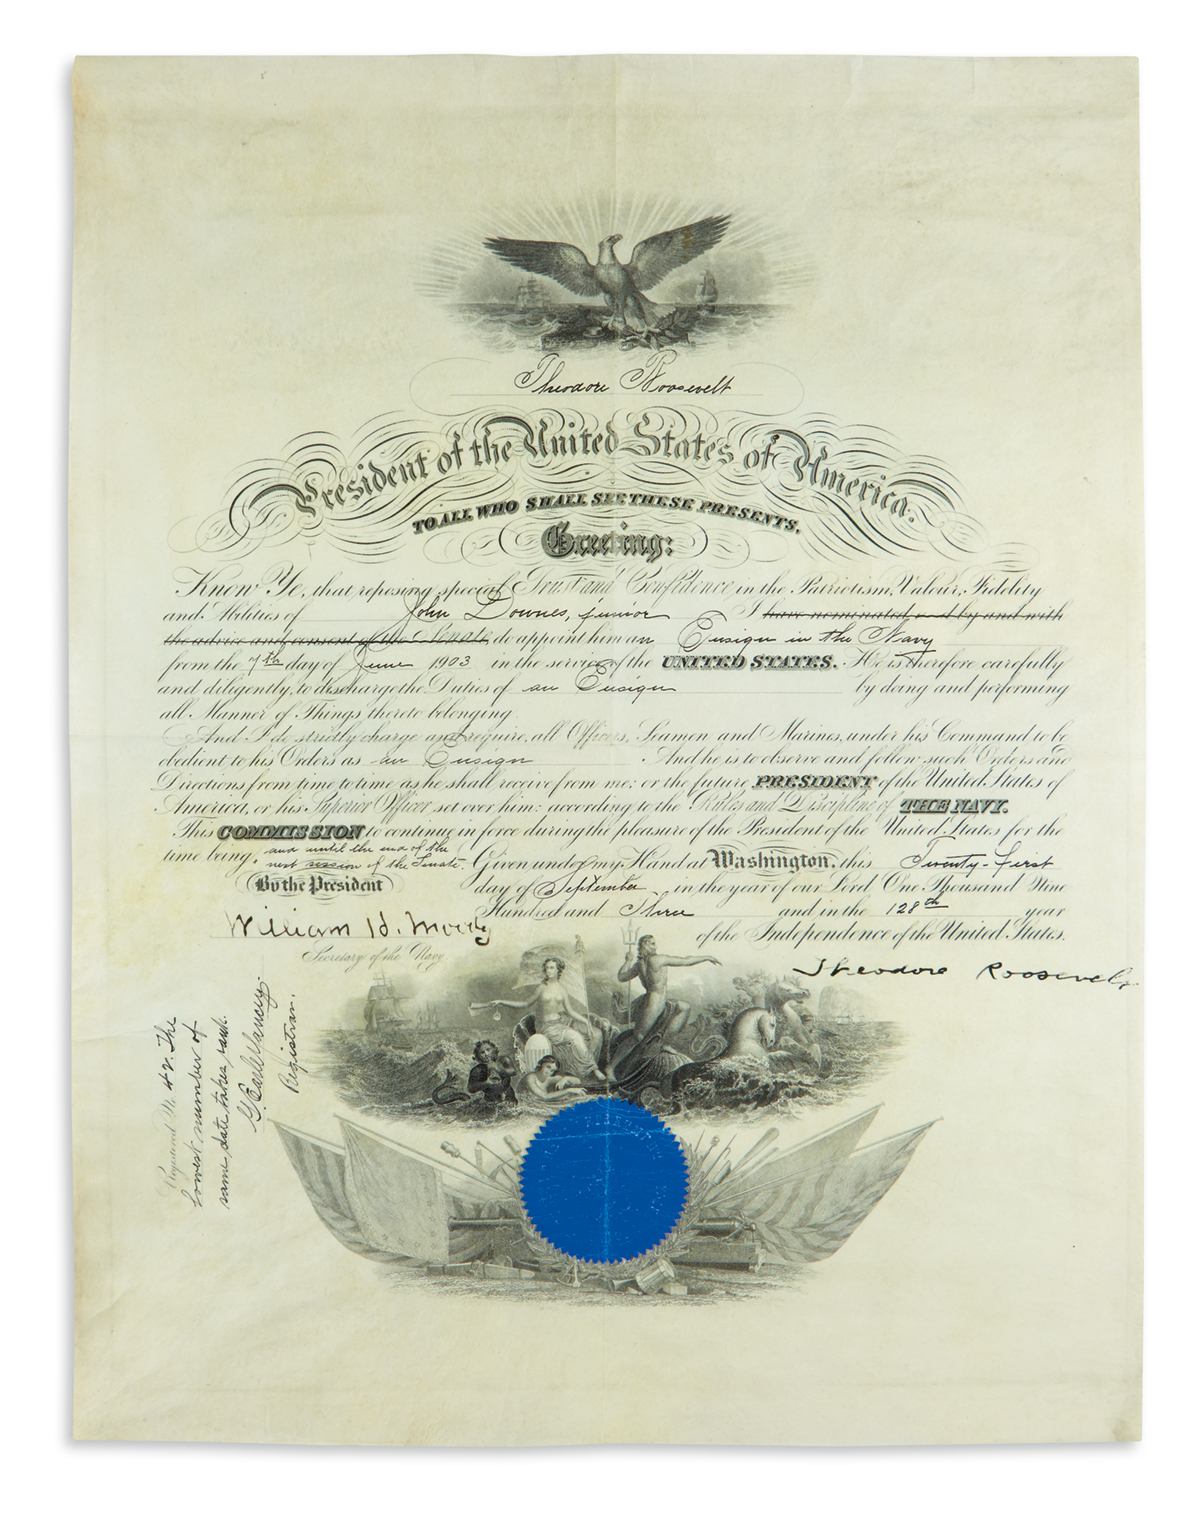 Theodore Roosevelt
President of the United States of America.
TO ALL WHO SHALL SEE THESE PRESENTS,
Greeting:
Know Ye, that reposing special Trust and Confidence in the Patriotism, Valour, Fidelity
and Abilities of John Downes, junior I have nominated and by and with
the advice and consent of the Senate, do appoint him an Ensign in the Navy
from the 7th day of June 1903 in the service of the UNITED STATES. He is therefore carefully
and diligently to discharge the Duties of an Ensign by doing and performing
all Manner of Things thereto belonging.
And I do strictly charge and require, all Officers, Seamen and Marines, under his Command to be
obedient to his Orders as an Ensign And he is to observe and follow such Orders and
Directions from time to time as he shall receive from me; or the future PRESIDENT of the United States of
America, or his Superior Officer set over him; according to the Rules and Discipline of THE NAVY.
This COMMISSION to continue in force during the pleasure of the President of the United States for the
time being, and until the end of the
next session of the Senate. Given under my Hand at Washington, this Twenty-first
By the President
day of September in the year of our Lord One Thousand Nine
Hundred and Three and in the 128th year
of the Independence of the United States.
William H. Moody
Secretary of the Navy
Theodore Roosevelt
Registered No. 42. The
lowest number of
same date takes rank.
Registrar.